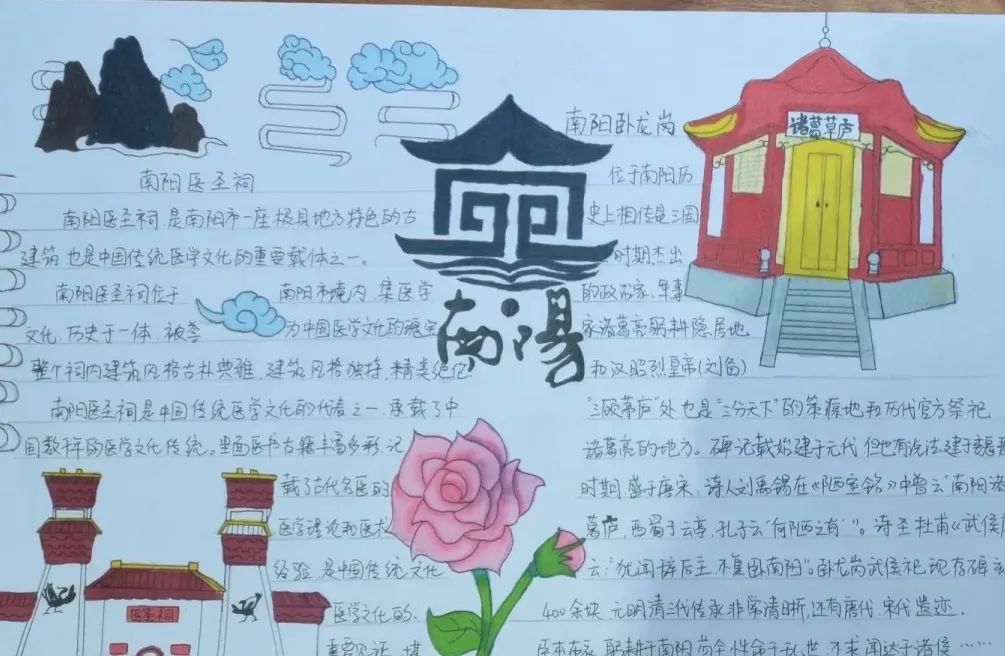 南阳医圣祠
南阳医圣祠,是南阳市一座极具地方特色的古
建筑,也是中国传统医学文化的重要载体之一。
南阳医圣祠位于南阳市境内,集医学
文化,历史于一体,被誉为中国医学文化的瑰宝
整个祠内建筑风格古朴典雅,建筑风格独特,精美绝伦
南阳医圣祠是中国传统医学文化的代表之一,承载了中
国数千年的医学文化传统。里面医书古籍丰富多彩,记
载了古代名医的
医学理论和医术
经验,是中国传统文化
医学文化的
重要见证,堪
医圣祠
南陽
南阳卧龙岗
位于南阳历
史上相传是三国
时期杰出
的政治家、军事
家诸葛亮躬耕隐居地
和汉昭烈皇帝(刘备)
“三顾茅庐”处也是“三分天下”的策源地和历代官方祭祀
诸葛亮的地方。碑记载始建于元代,但也有说法建于魏晋
时期,盛于唐宋,诗人刘禹锡在《陋室铭》中曾云“南阳诸
葛庐,西蜀子云亭,孔子云‘何陋之有’”。诗圣杜甫《武侯
云:“犹闻辞后主,不复卧南阳”。卧龙岗武侯祠现存碑
400余块,元明清三代传承非常清晰,还有唐代、宋代遗迹.
臣本布衣,躬耕于南阳,苟全性命于乱世,不求闻达于诸侯……
诸葛草庐